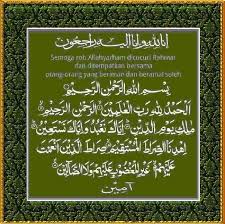 إنا لله وإنا إليه راجعون
Semoga roh Allahyarham dicucuri Rahmat
dan ditempatkan bersama
orang-orang yang beriman dan beramal soleh
بسم الله الرحمن الرحيم
الحمد لله رب العلمين الرحمن الرحيم
ملك يوم الدين إياك نعبد وإياك نستعين
اهدنا الصراط المستقيم صراط الذين أنعمت
عليهم غير المغضوب عليهم ولا الضالين
آمين